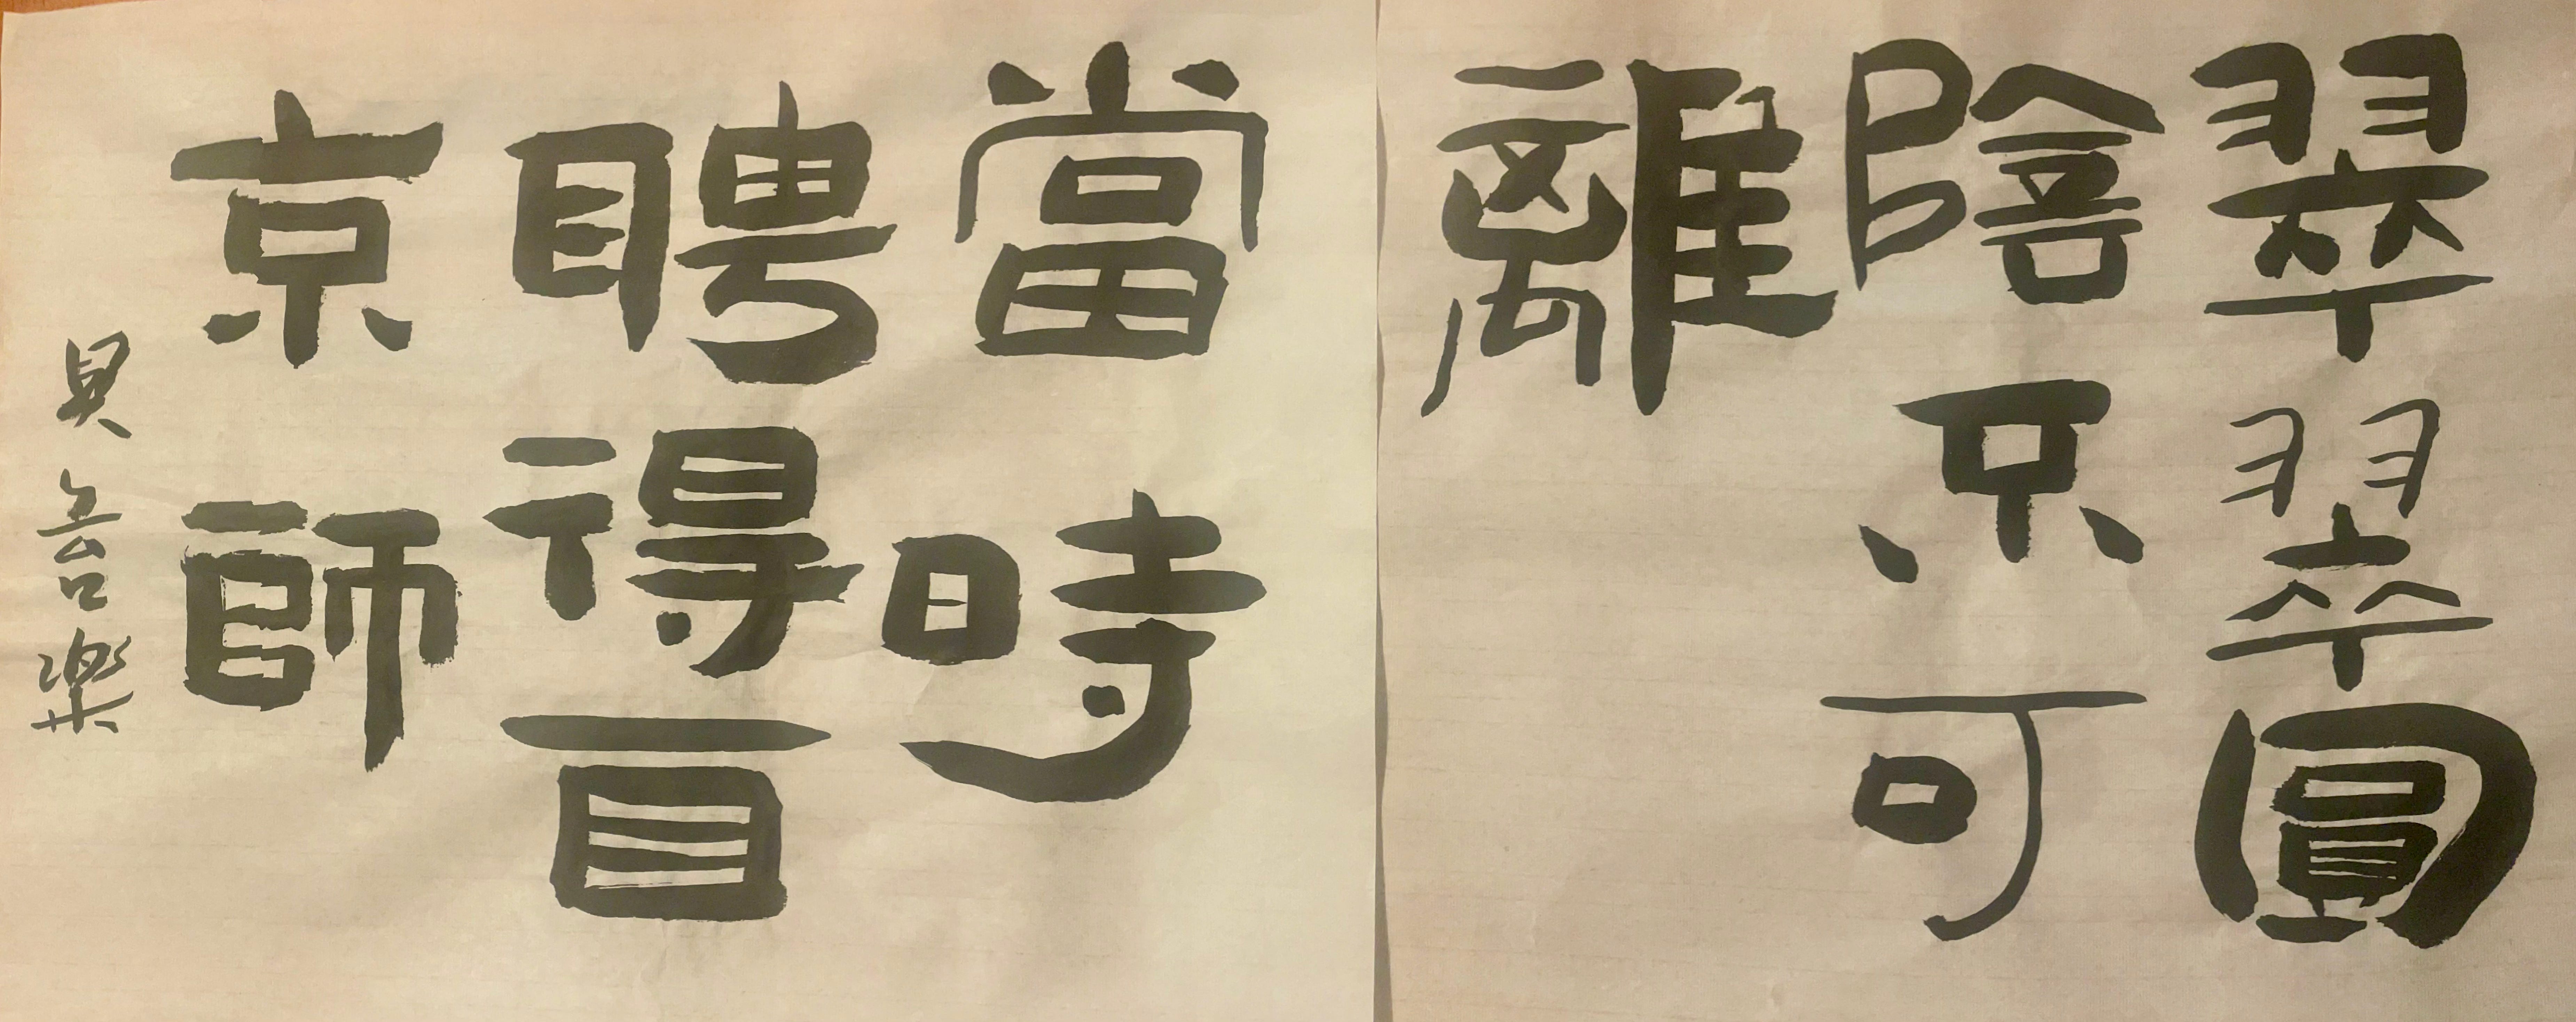 翠翠圓
陰不可
離
當時
聘得百
京師